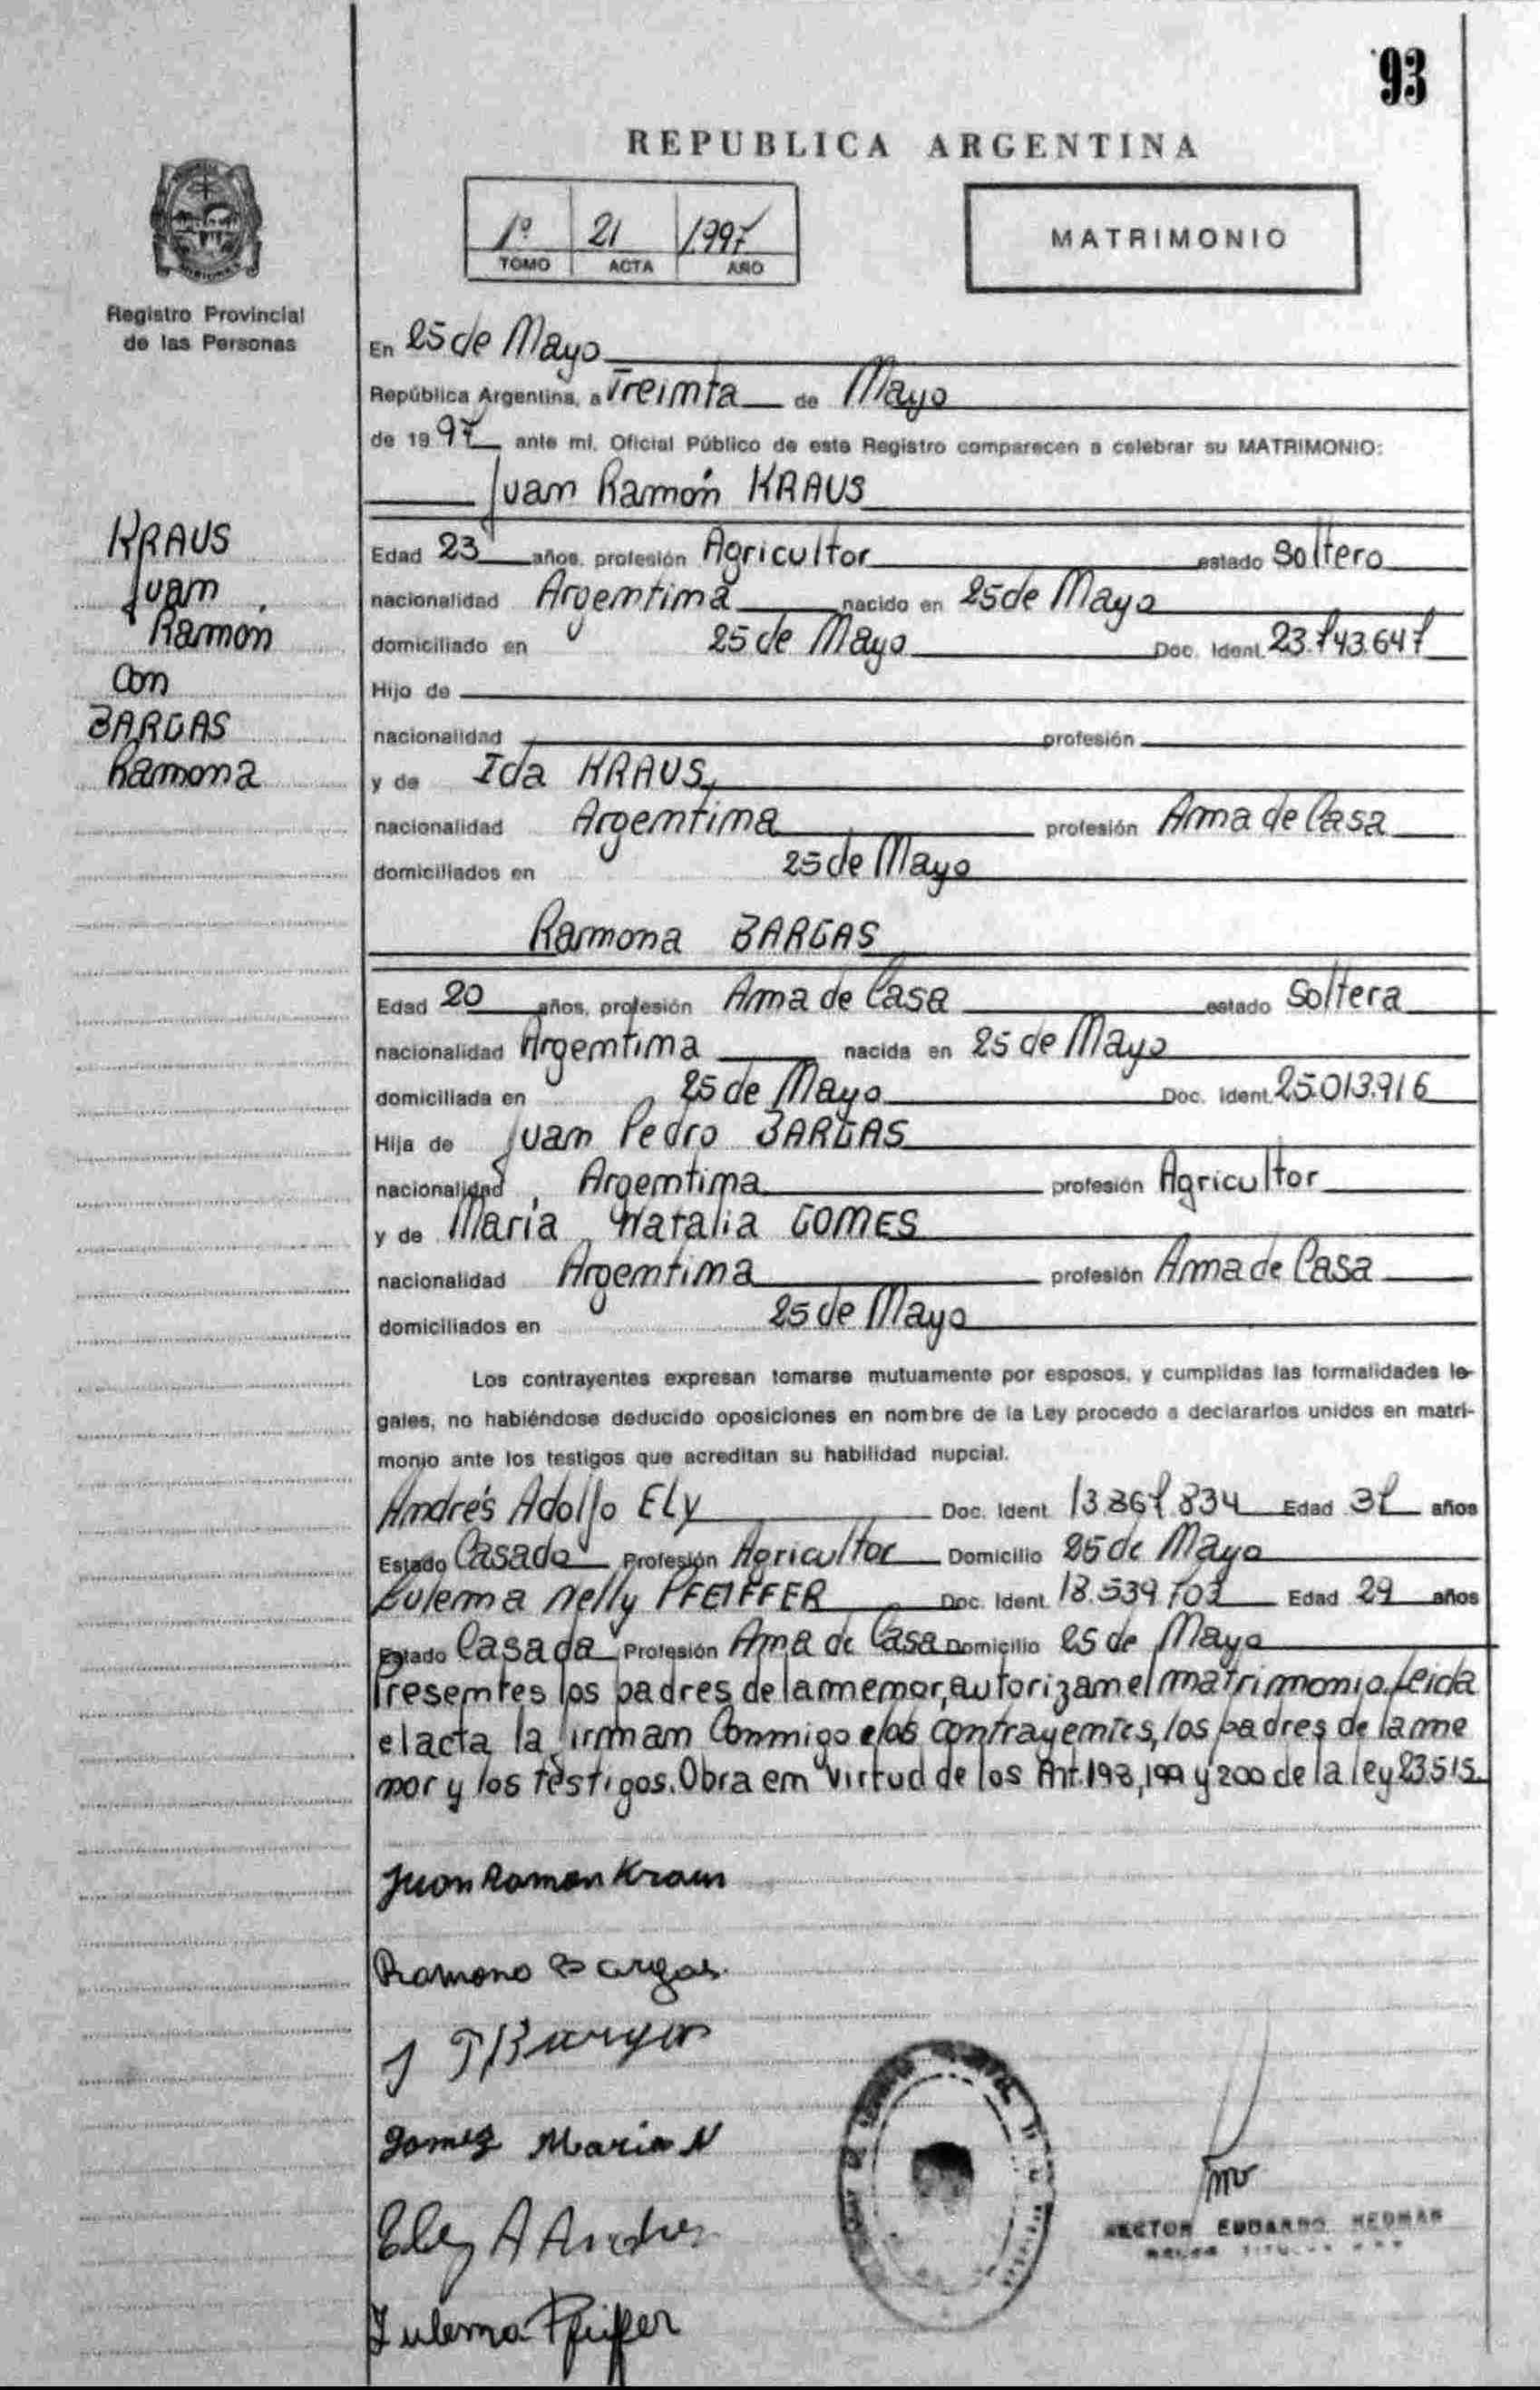 93
REPUBLICA ARGENTINA
1º 21 1997
TOMO ACTA AÑO
MATRIMONIO
Registro Provincial
de las Personas
En 25 de Mayo
República Argentina, a Treinta de Mayo
de 1997 ante mí, Oficial Público de este Registro comparecen a celebrar su MATRIMONIO:
Juan Ramón KRAUS
KRAUS
Juan
Ramón
Con
BARGAS
Ramona
Edad 23 años, profesión Agricultor estado Soltero
nacionalidad Argentina nacido en 25 de Mayo
domiciliado en 25 de Mayo Doc. Ident. 23.743.647
Hijo de
nacionalidad profesión
y de Ida KRAUS,
nacionalidad Argentina profesión Ama de Casa
domiciliados en 25 de Mayo
Ramona BARGAS
Edad 20 años, profesión Ama de Casa estado Soltera
nacionalidad Argentina nacida en 25 de Mayo
domiciliada en 25 de Mayo Doc. Ident. 25.013.916
Hija de Juan Pedro BARGAS
nacionalidad Argentina profesión Agricultor
y de María Natalia GOMES
nacionalidad Argentina profesión Ama de Casa
domiciliados en 25 de Mayo
Los contrayentes expresan tomarse mutuamente por esposos, y cumplidas las formalidades le-
gales, no habiéndose deducido oposiciones en nombre de la Ley procedo a declararlos unidos en matri-
monio ante los testigos que acreditan su habilidad nupcial.
Andrés Adolfo ELY Doc. Ident. Edad años
Estado Casado Profesión Agricultor Domicilio 25 de Mayo
Zulema Nelly PFEIFFER Doc. Ident. 18.539.703 Edad 29 años
Estado Casada Profesión Ama de Casa Domicilio 25 de Mayo
Presentes los padres de la menor, autorizan el matrimonio. Leida
el acta la firman Conmigo los contrayentes, los padres de la me
nor y los testigos. Obra en virtud de los Art. 198, 199 y 200 de la ley 23.515.
Juan Ramon Kraus
Ramona Bargas
J P Bargas
Gomez Maria N
Ely A Andres
Zulema Pfeiffer
HECTOR EDUARDO